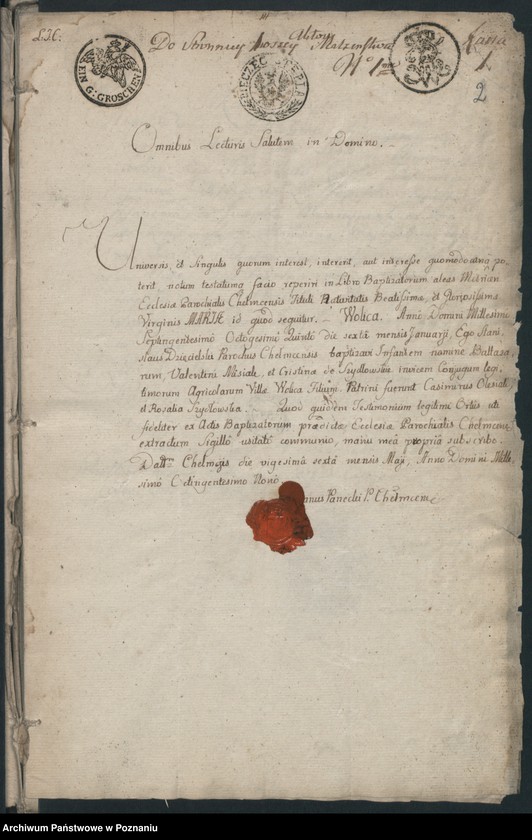 Aktów
Do Stronnicy Małżeństwa
N° 1
2
EIN G: GROSCHEN
Omnibus Lecturis Salutem in Domino.
Universis, et Singulis quorum interest, intererit, aut interesse quomodocunq po-
terit, notum testatumq facio reperiri in Libro Baptizatorum
Ecclesiæ Parochialis Chełmcensis Tituli Nativitatis Beatissimæ, et Gloriosissimæ
Virginis MARIÆ id quod sequitur. Wolica. Anno Domini Millesimo
Septingentesimo Octogesimo Quinto die sexta mensis Januarij, Ego Stani-
slaus Parochus Chełmcensis baptizavi Infantem nomine Baltasa-
rum, Valentini Misiak, et Cristinæ de Szydłowskie invicem Conjugum legi-
timorum Agricolarum Villæ Wolica Filium. Patrini fuerunt Casimirus Olesiak
et Rosalia Szydłowska. Quod quidem Testimonium legitimi Ortus uti
fideliter ex Actis Baptizatorum prædictæ Ecclesiæ Parochialis Chełmcensis
extractum Sigillo usitato communio, manu mea propria subscribo.
Datt Chełmcis die vigesima sexta mensis Maji, Anno Domini Mille-
simo Octingentesimo Nono.
Panecki P. Chełmcen
Archiwum Państwowe w Poznaniu